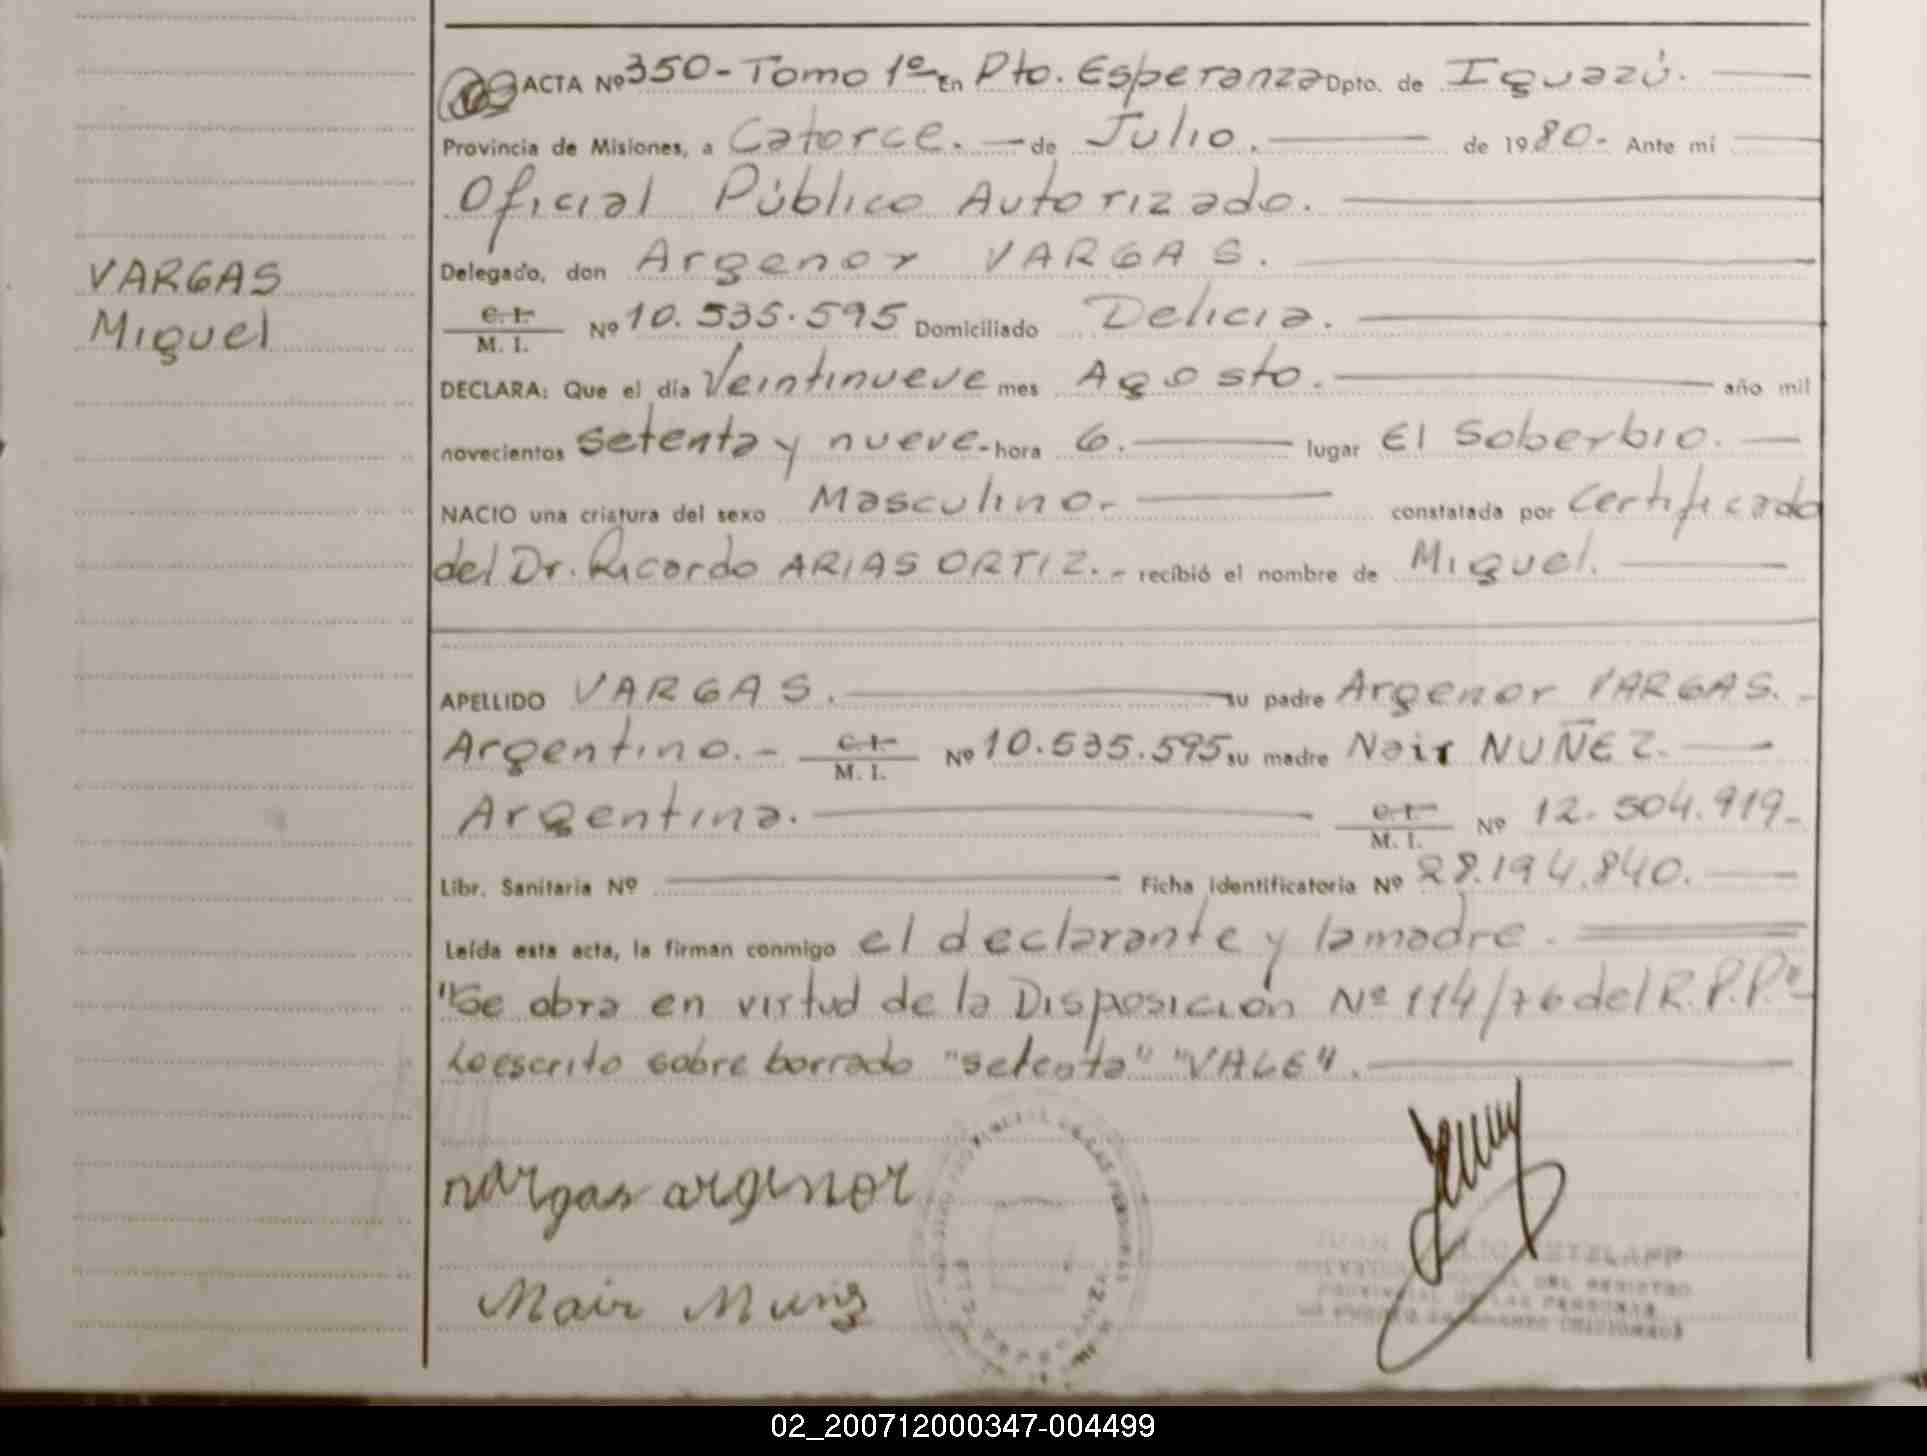 ACTA Nº 350 - Tomo 1º En Pto. Esperanza Dpto. de Iguazú.
Provincia de Misiones, a Catorce. de Julio. de 1980.- Ante mí
Oficial Público Autorizado.
Delegado, don Argenor VARGAS.
VARGAS
Miguel
C. I.
M. I. Nº 10.535.595 Domiciliado Delicia.
DECLARA: Que el día Veintinueve mes Agosto. año mil
novecientos setenta y nueve.- hora 6. lugar El Soberbio.
NACIO una criatura del sexo Masculino.- constatada por Certificado
del Dr. Ricardo ARIAS ORTIZ. - recibió el nombre de Miguel.
APELLIDO VARGAS. su padre Argenor VARGAS. -
Argentino. - C. I. M. I. Nº 10.535.595 su madre Nair NUÑEZ.
Argentina. C. I. M. I. Nº 12.504.919-
Libr. Sanitaria Nº Ficha Identificatoria Nº 28.194.840.
Leída esta acta, la firman conmigo el declarante y la madre.
"Se obra en virtud de la Disposición Nº 114/76 del R.P.P."
Lo escrito sobre borrado "setenta" "VALE".
vargas argenor
Nair Nunes
DEL REGISTRO
PROVINCIAL DE LAS PERSONAS
02_200712000347-004499